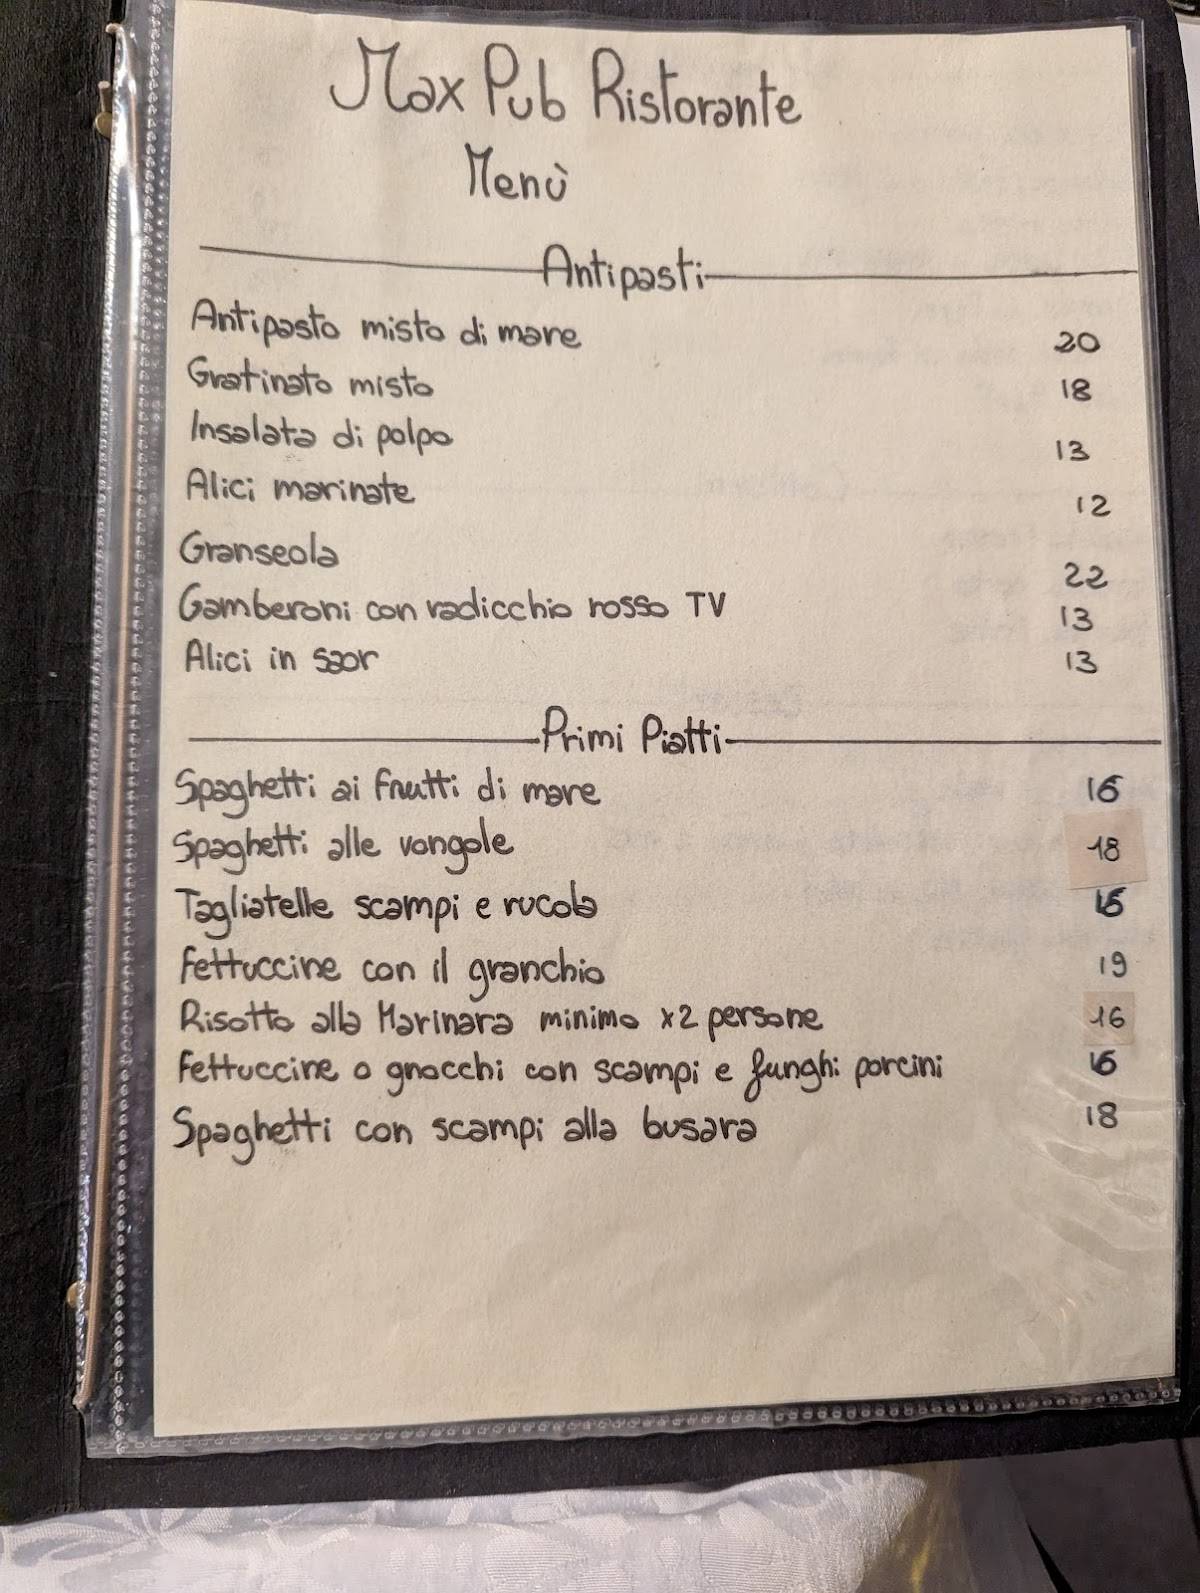 Max Pub Ristorante
Menù
Antipasti
Antipasto misto di mare 20
Gratinato misto 18
Insalata di polpo 13
Alici marinate 12
Granseola 22
Gamberoni con radicchio rosso TV 13
Alici in saor 13
Primi Piatti
Spaghetti ai frutti di mare 16
Spaghetti alle vongole 18
Tagliatelle scampi e rucola 16
Fettuccine con il granchio 19
Risotto alla Marinara minimo x2 persone 16
Fettuccine o gnocchi con scampi e funghi porcini 16
Spaghetti con scampi alla busara 18